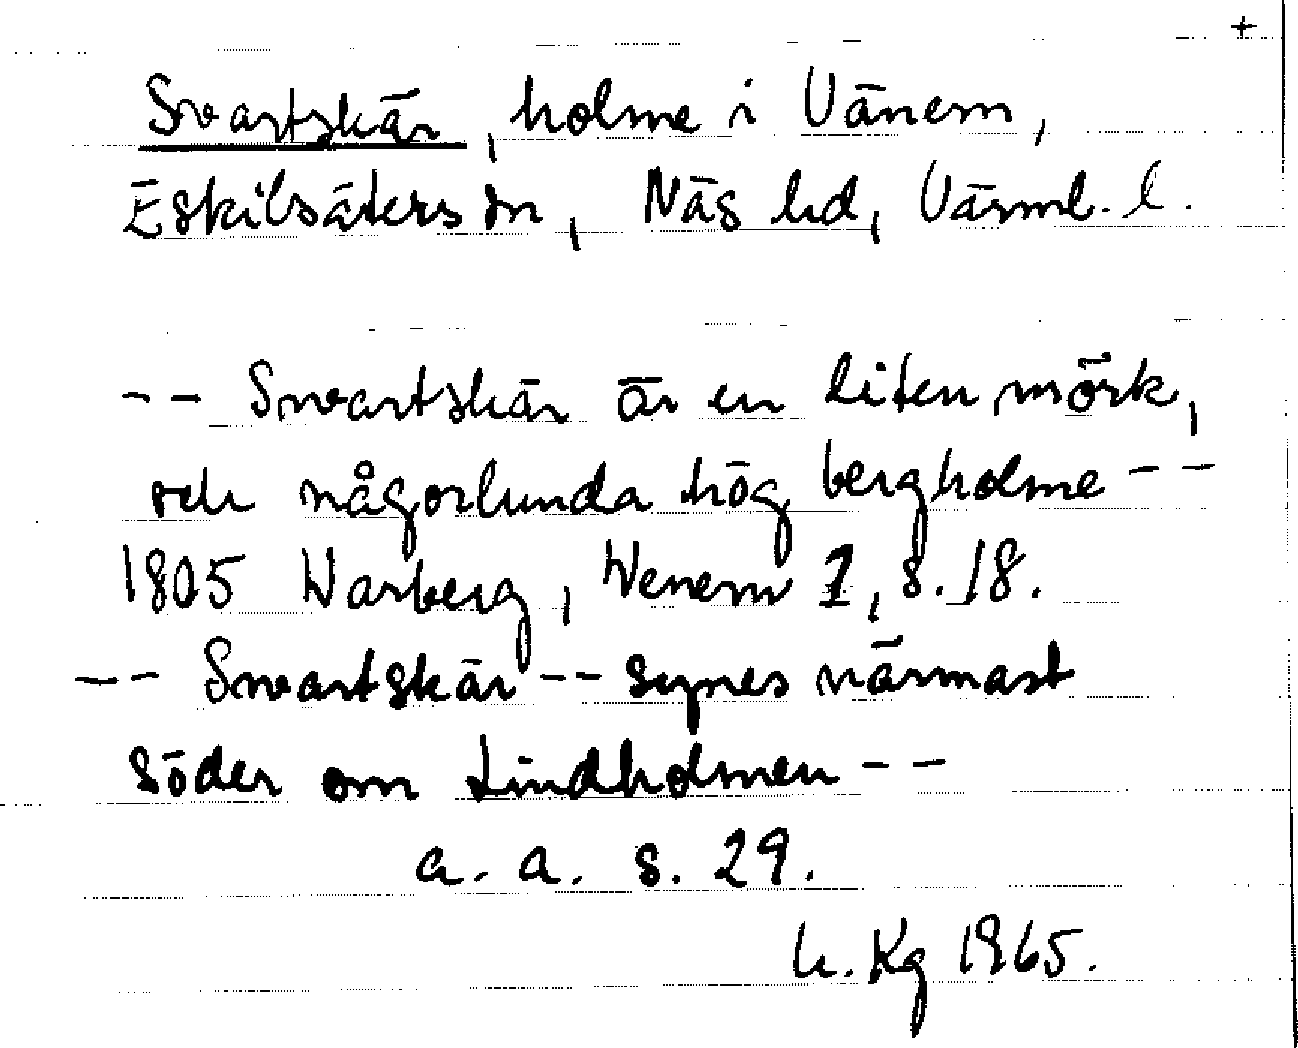 +
Svartskär, holme i Vänern,
Eskilsäters sn, Näs hd, Värml. l.
-- Svartskär är en liten mörk,
och någorlunda hög bergholme --
1805 Warberg, Wenern 1, s. 18.
-- Svartskär -- synes närmast
söder om Lindholmen --
a. a. s. 29.
h. Kg 1965.